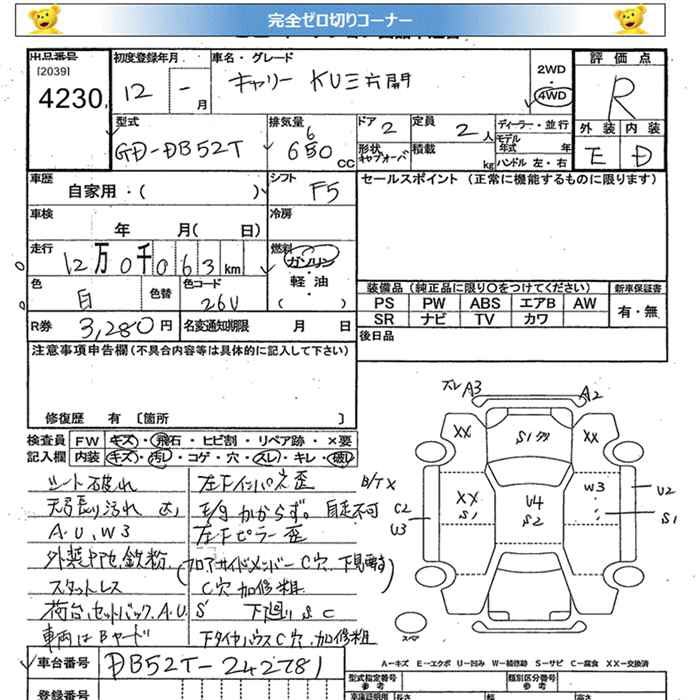 完全ゼロ切りコーナー
出品番号
[2039]
4230
初度登録年月
12 - 月
車名・グレード
キャリー KU三方開
2WD
4WD
評価点
R
外装 内装
E D
型式
GD-DB52T
排気量
6
650 CC
ドア 2
形状
キャブオーバ
定員
2 人
積載
kg
ディーラー・並行
モデル
年式 年
ハンドル 左・右
車歴
自家用・( )
シフト
F5
セールスポイント (正常に機能するものに限ります)
車検
年 月( 日)
冷房
走行
12万0千063km
燃料
ガソリン
軽油
( )
色
白
色替
色コード
26U
装備品(純正品に限り○をつけてください)
新車保証書
PS PW ABS エアB AW
有・無
SR ナビ TV カワ
R券 3,280円
名変通知期限 月 日
後日品
注意事項申告欄(不具合内容等は具体的に記入して下さい)
修復歴 有 [箇所 ]
検査員 FW キズ・飛石・ヒビ割・リペア跡・×要
記入欄 内装 キズ・汚し・コゲ・穴・スレ・キレ・破レ
シート破れ
左Fインパネ歪
B/T×
天張汚れ 大
E/gかからず。自走不可
A.U.W3
左Fピラー歪
外装P他鉄粉
(フロアサイドメンバーC穴.下見廻り)
スタットレス
C穴加修粗
荷台.セットバック.A.U S
下廻りSC
車両はBヤード
下タイヤハウスC穴.加修粗
車台番号 DB52T-242781
登録番号
ズレA3
A2
XX
S1ワレ
XX
C2
U3
XX
S1
U4
S2
W3
U2
S1
スペア
A-キズ E-エクボ U-凹み W-補修跡 S-サビ C-腐食 XX-交換済
型式指定番号
参考
類別区分番号
参考
車庫証明用
長さ
幅
高さ